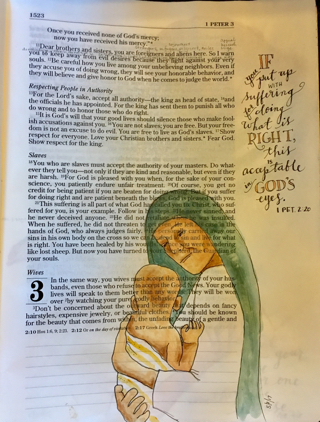 1523
1 PETER 3
Once you received none of God's mercy,
now you have received his mercy."
11Dear brothers and sisters, you are foreigners and aliens here. So I warn
you to keep away from evil desires because they fight against your very
souls. 12Be careful how you live among your unbelieving neighbors. Even if
they accuse you of doing wrong, they will see your honorable behavior, and
they will believe and give honor to God when he comes to judge the world.
Respecting People in Authority
13For the Lord's sake, accept all authority—the king as head of state, 14and
the officials he has appointed. For the king has sent them to punish all who
do wrong and to honor those who do right.
15It is God's will that your good lives should silence those who make fool-
ish accusations against you. 16You are not slaves; you are free. But your free-
dom is not an excuse to do evil. You are free to live as God's slaves. 17Show
respect for everyone. Love your Christian brothers and sisters. Fear God.
Show respect for the king.
Slaves
18You who are slaves must accept the authority of your masters. Do what-
ever they tell you—not only if they are kind and reasonable, but even if they
are harsh. 19For God is pleased with you when, for the sake of your con-
science, you patiently endure unfair treatment. 20Of course, you get no
credit for being patient if you are beaten for doing wrong. But if you suffer
for doing right and are patient beneath the blows, God is pleased with you.
21This suffering is all part of what God has called you to. Christ, who suf-
fered for you, is your example. Follow in his steps. 22He never sinned, and
he never deceived anyone. 23He did not
When he suffered, he did not threaten to
hands of God, who always judges fairly.
sins in his own body on the cross so we
is right. You have been healed by his
like lost sheep. But now you have turned
your souls.
Wives
3 In the same way, you wives must accept the authority of your hus-
bands, even those who refuse to accept the Good News. Your godly
lives will speak to them better than any words. They will be won
over 2by watching your pure, godly behavior.
3Don't be concerned about the outward beauty that depends on fancy
hairstyles, expensive jewelry, or beautiful clothes. 4You should be known
for the beauty that comes from within, the unfading beauty of a gentle and
2:10 Hos 1:6, 9; 2:23. 2:12 Or on the day of 2:17 Greek Love the
IF
you put up
with
suffering
for doing
what is
RIGHT,
this
is
acceptable
in GOD'S
eyes.
1 PET. 2.20